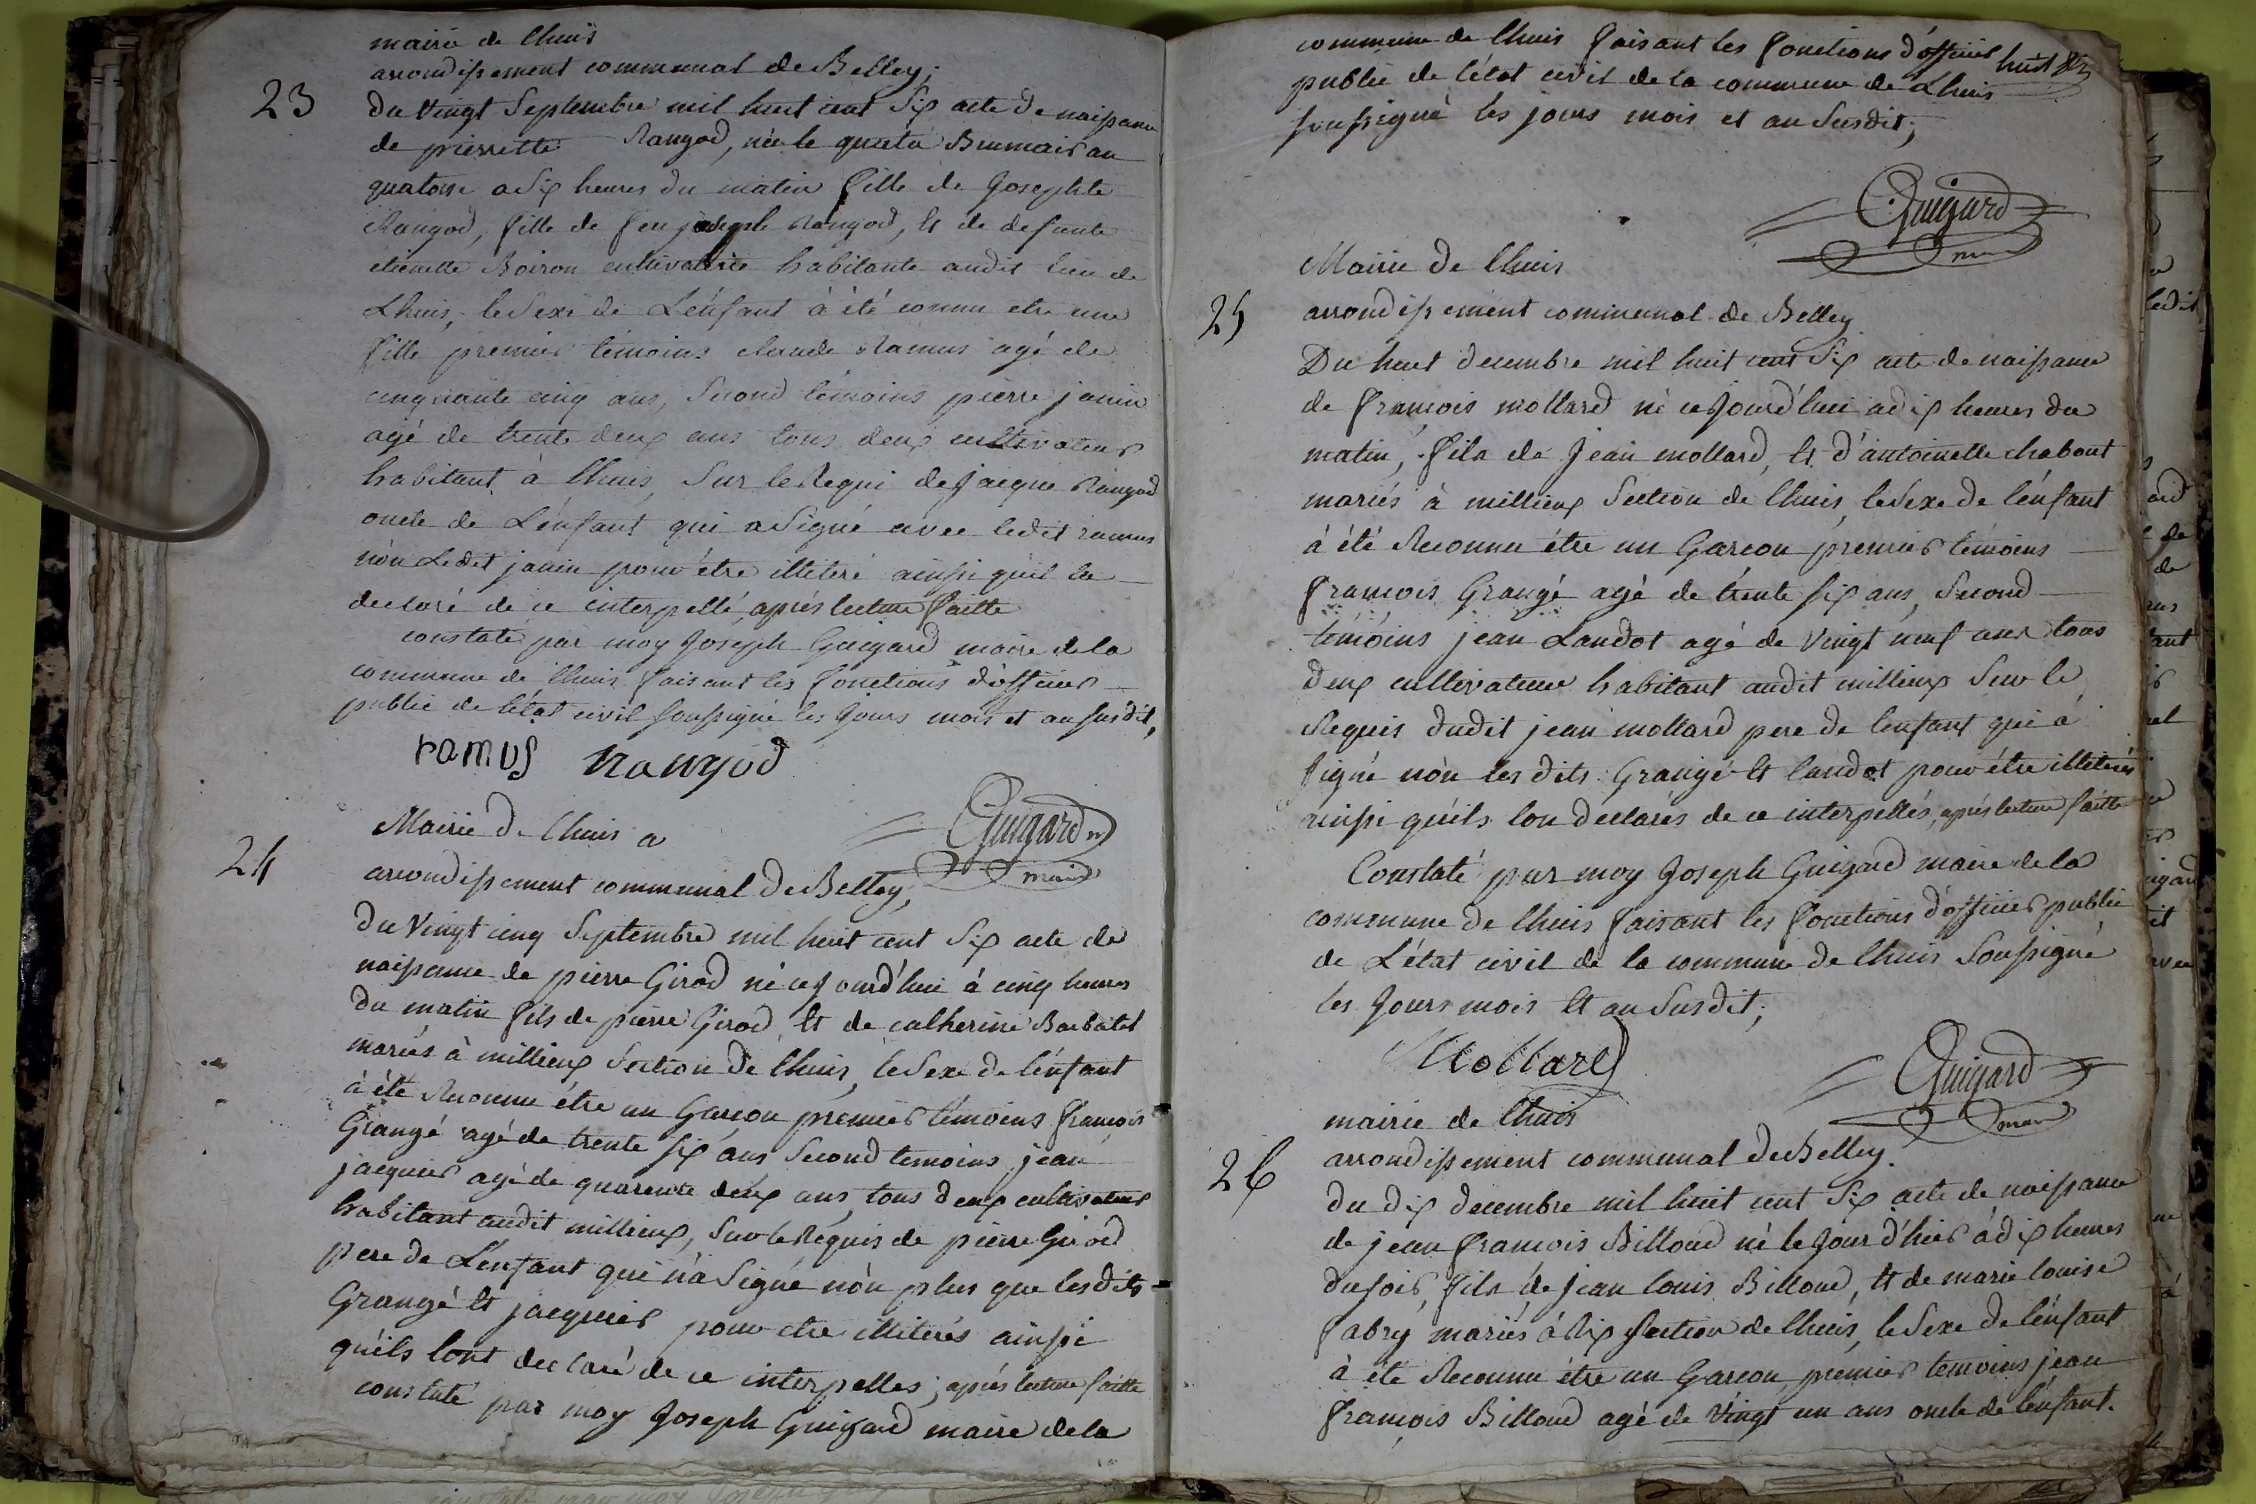 mairie de lhuis
arrondissement communal de Belley;
23
du vingt Septembre mil huit cent Six acte de naissance
de pierrette Rangod, née le quatre Brumaire an
quatorze a Six heures du matin fille de Josephte
Rangod, fille de feu joseph Rangod, et de defunte
etienette Boiron cultivatrice habitante audit lieu de
Lhuis, le Sexe de L'enfant à été connu etre une
fille premier temoins claude Ramus agé de
cinquante cinq ans, Second temoins pierre janin
agé de trente deux ans tous deux cultivateurs
habitant à lhuis, Sur le Requi de Jacque Rangod
oncle de L'enfant qui a Signé avec ledit ramus
nòn Ledit janin pour être illiteré ainsi qu'il la
declaré de ce interpellé, après lecture faitte
constaté par moy Joseph Guigard maire de la
commune de lhuis faisant les fonctions d'officier
public de l'état civil soussigné les Jours mois et an susdit,
ramus Rangod
Guigard
maire
24
Mairie de lhuis a
arrondissement communal de Belley,
du Vingt cinq Septembre mil huit cent Six acte de
naissance de pierre Girod né cejourd'hui à cinq heures
du matin fils de pierre Girod et de catherine Barbatet
mariés à millieux Section de lhuis, le Sexe de l'enfant
à été Reconnu être un Garcon premier temoins françois
Grangé agé de trente six ans Second temoins jean
jacquier agé de quarente deux ans, tous deux cultivateurs
habitant audit millieux, Sur le Requis de pierre Girod
pere de L'enfant qui n'a Signé nòn plus que lesdits
Grangé et jacquier pour etre illiterés ainsi
qu'ils lont declaré de ce interpelles; après lecture faitte
constaté par moy Joseph Guigard maire de la
commune de lhuis faisant les fonctions d'officier
huit
public de l'état civil de la commune de Lhuis
soussigné les jours mois et an Susdit;
Guigard
Mairie de lhuis
25
arrondissement communal de Belley
Du huit decembre mil huit cent Six acte de naissance
de françois mollard né cejourd'hui a dix heures du
matin, fils de Jean mollard, et d'antoinette chabout
mariés à millieux Section de lhuis, le Sexe de l'enfant
à été Reconnu être un Garcon premier temoins
françois Grangé agé de trente six ans, Second
temoins jean Landot agé de vingt neuf ans tous
deux cultivateur habitant audit millieux Sur le
Requis dudit jean mollard pere de lenfant qui à
signé nòn les dits Grangé et landot pour être illiterés
ainsi qu'ils lon declarés de ce interpellés, après lecture faitte
Constaté par moy Joseph Guigard maire de la
commune de lhuis faisant les fonctions d'officier public
de L'état civil de la commune de lhuis Soussigné
les Jours mois et an Susdit;
Mollard
Guigard
maire
mairie de lhuis
26
arrondissement communal de Belley.
du dix decembre mil huit cent Six acte de naissance
de jean françois Billoud né le Jour d'hier à dix heures
du soir, fils de Jean louis Billoud, et de marie louise
fabry mariés à Rix Section de lhuis, le Sexe de l'enfant
à été Reconnu être un Garcon, premier temoins jean
françois Billoud agé de vingt un ans oncle de l'enfant.